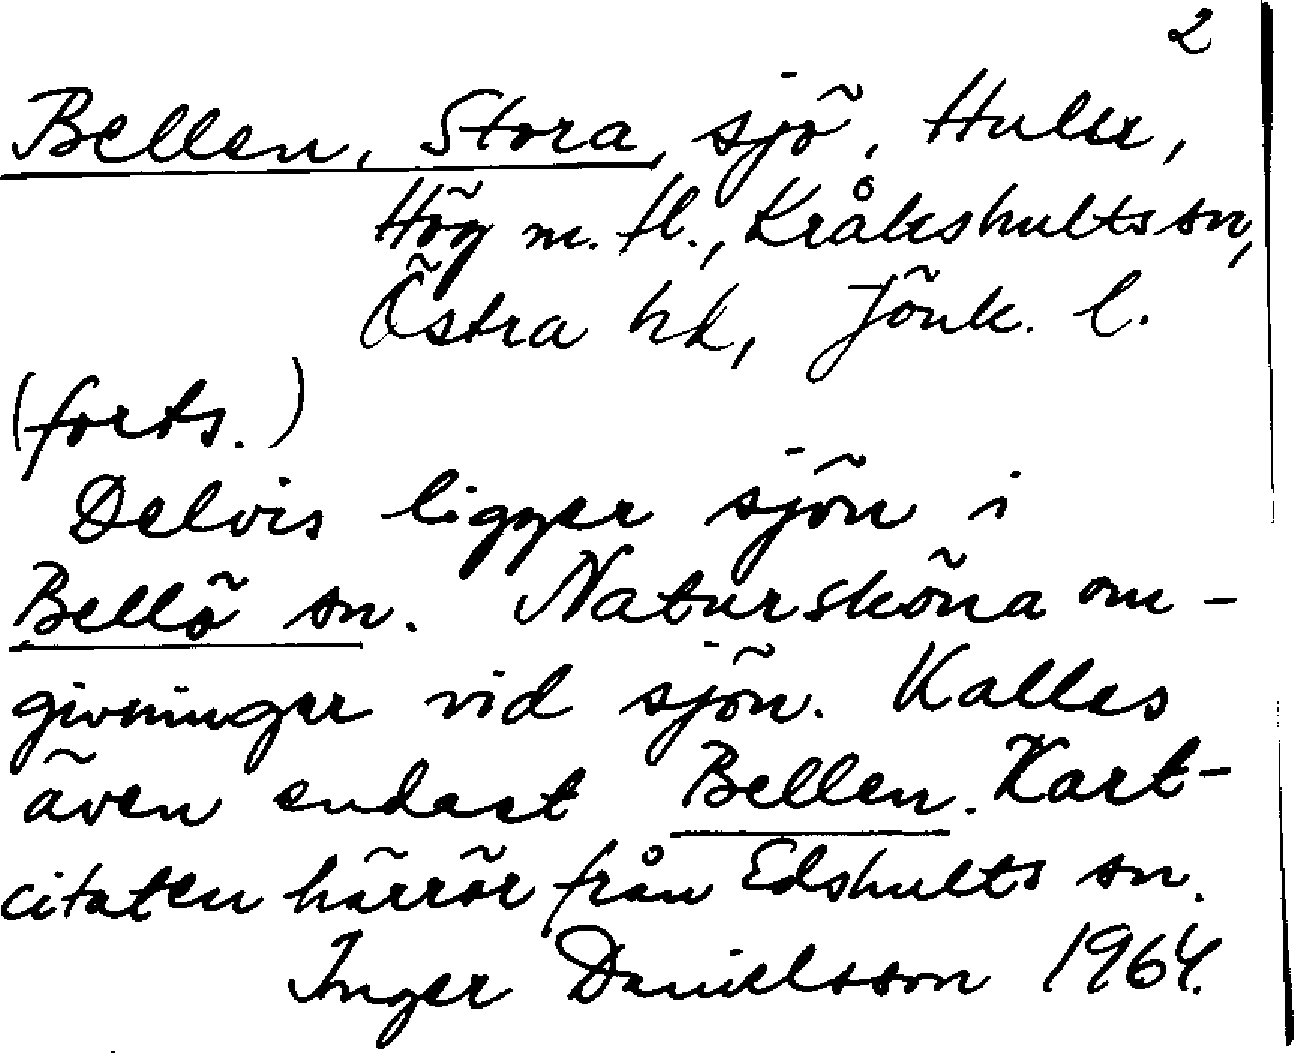 2
Bellen, Stora, sjö, Hulu,
Hög m. fl., Kråkshults sn,
Östra hd, Jönk. l.
(forts.)
Delvis ligger sjön i
Bellö sn. Natursköna om-
givningar vid sjön. Kallas
även endast Bellen. Kart-
citaten härrör från Edshults sn.
Inger Danielsson 1964.